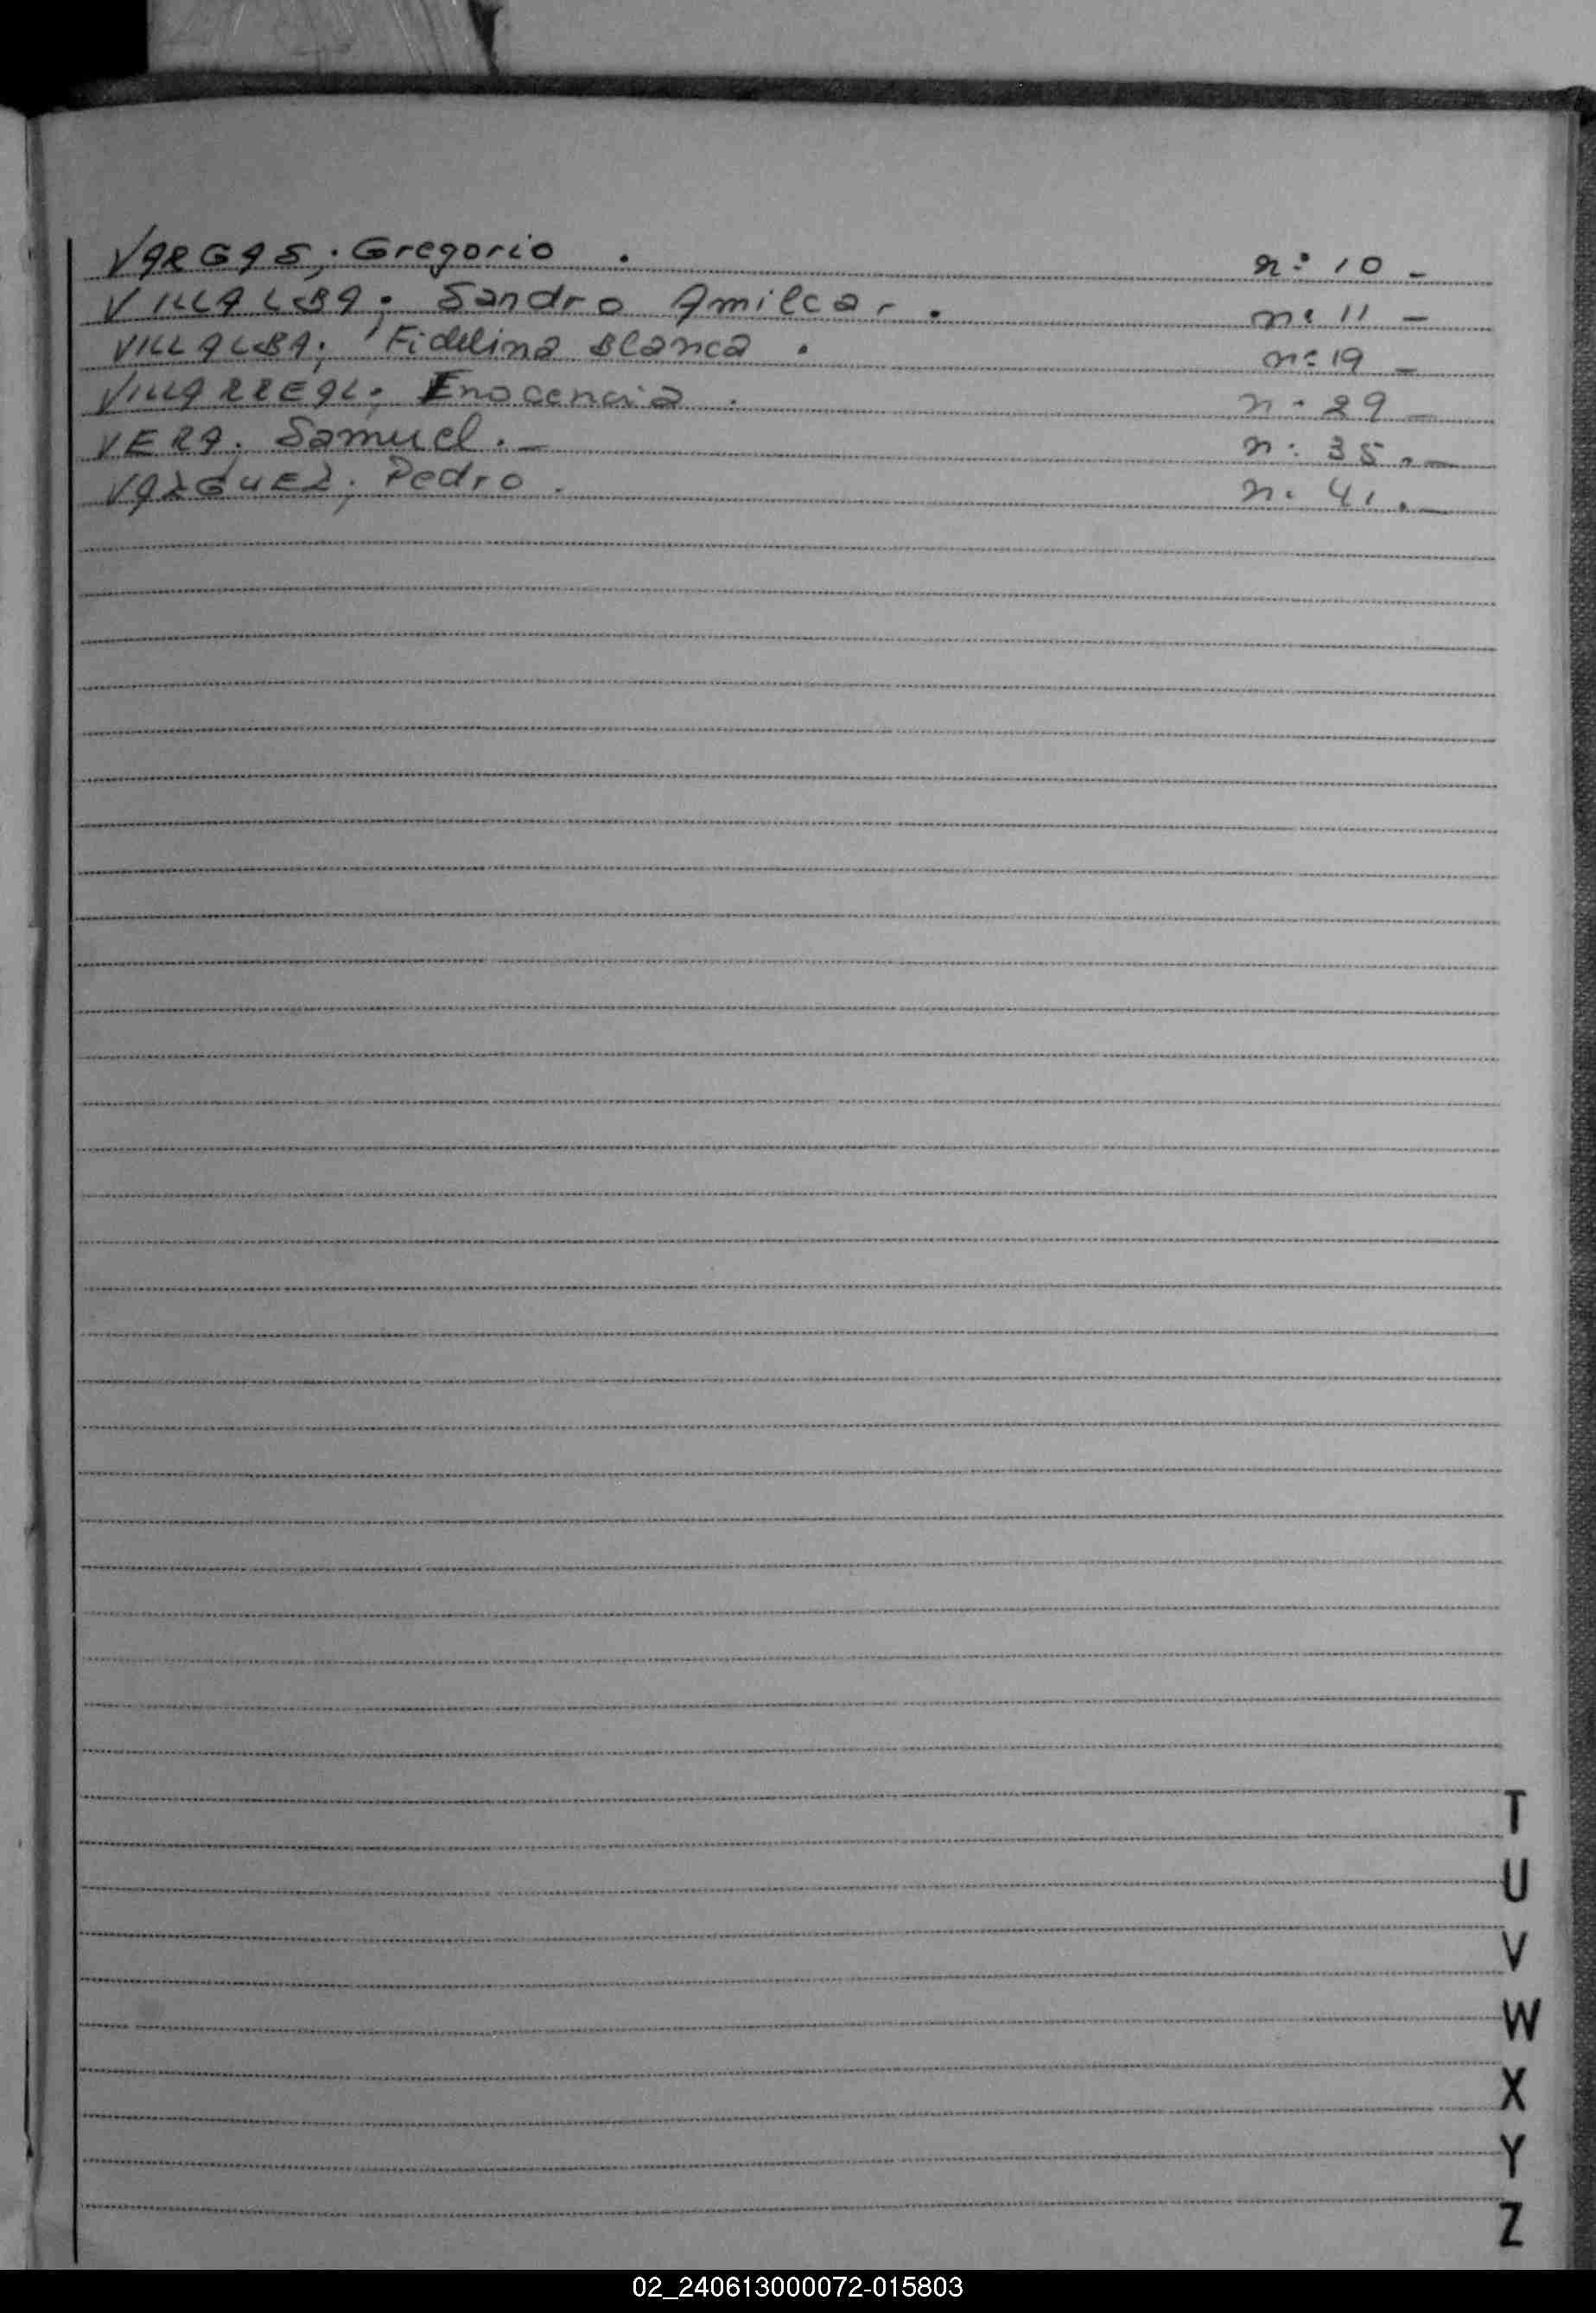 VARGAS; Gregorio . n: 10 -
VILLALBA; Sandro Amilcar . n: 11 -
VILLALBA; Fidelina Blanca . n: 19 -
VILLARREAL; Enocencia . n: 29 -
VERA; Samuel . - n: 35 . -
VAZGUEZ; Pedro . n. 41 . -
T
U
V
W
X
Y
Z
02_240613000072-015803